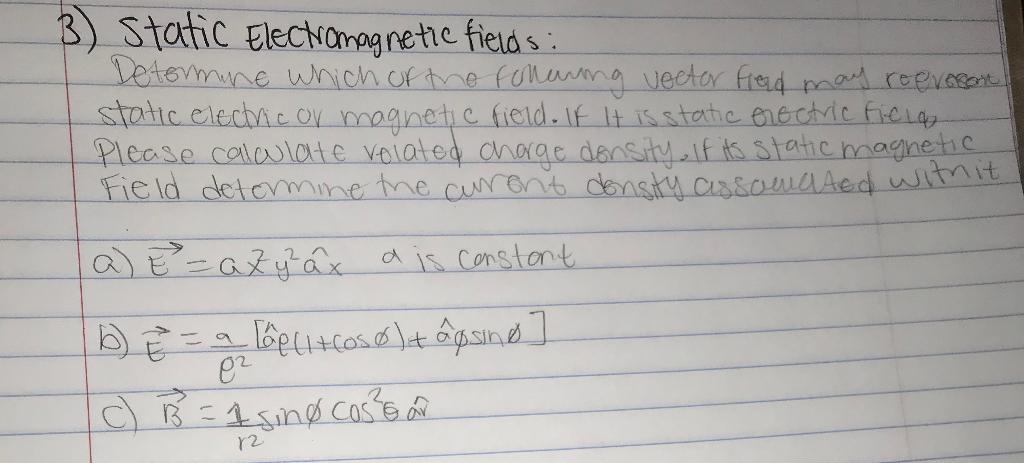 3) Static Electromagnetic fields:
Determine which of the following vector field may represent
static electric or magnetic field. If it is static electric field,
Please calculate related charge density. If its static magnetic
Field determine the current density associated with it
a) E⃗ = a z y² âx a is constant
b) E⃗ = a/ρ² [âρ(1+cosø)+ âøsinø]
c) B⃗ = 1/r² sinø cos²θ âr